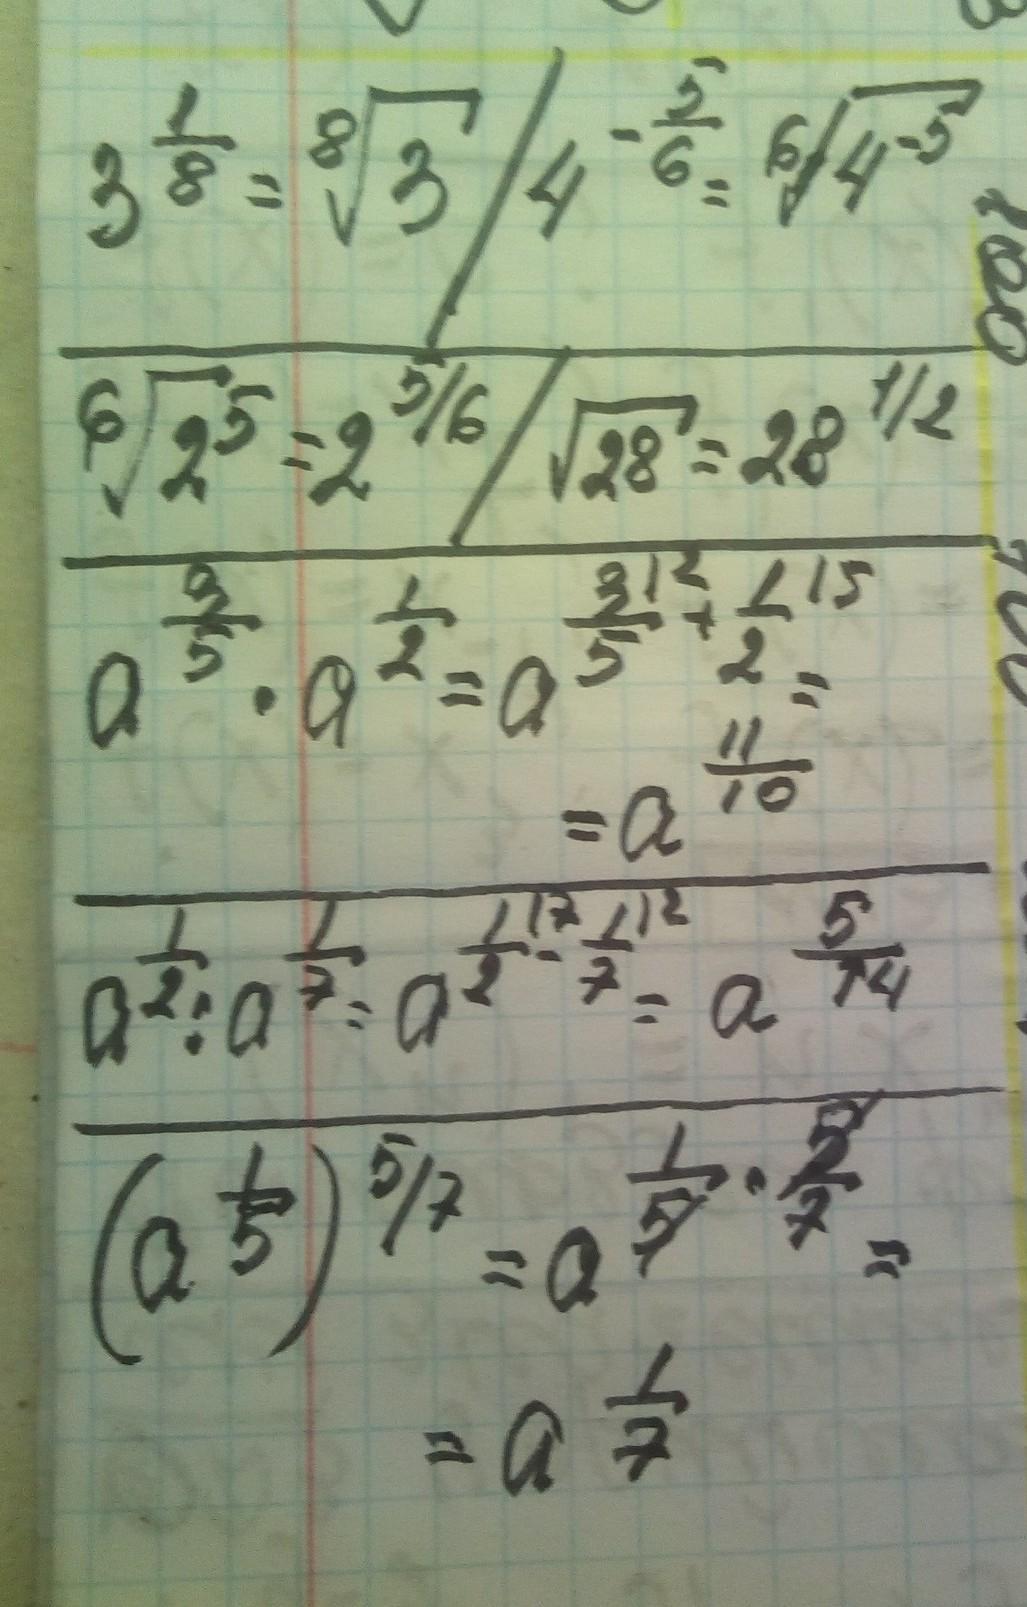 3^{\frac{1}{8}} = \sqrt[8]{3} / 4^{-\frac{5}{6}} = \sqrt[6]{4^{-5}}
\sqrt[6]{2^5} = 2^{5/6} / \sqrt{28} = 28^{1/2}
a^{\frac{3}{5}} · a^{\frac{1}{2}} = a^{\frac{3}{5}|2 + \frac{1}{2}|5} =
= a^{\frac{11}{10}}
a^{\frac{1}{2}} : a^{\frac{1}{7}} = a^{\frac{1}{2}|7 - \frac{1}{7}|2} = a^{\frac{5}{14}}
(a^{\frac{1}{5}})^{5/7} = a^{\frac{1}{5} · \frac{5}{7}} =
= a^{\frac{1}{7}}